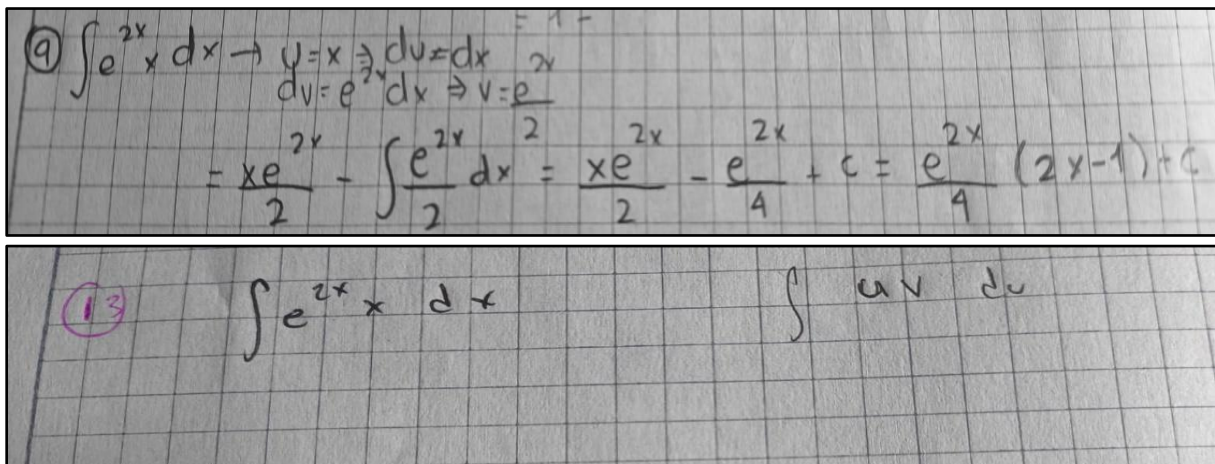 ⑨ ∫ e^{2x} x dx → u = x ⇒ du = dx
dv = e^{2x} dx ⇒ v = e^{2x}/2
= xe^{2x}/2 - ∫ e^{2x}/2 dx = xe^{2x}/2 - e^{2x}/4 + c = e^{2x}/4 (2x-1) + c
⑬ ∫ e^{2x} x dx ∫ uv du